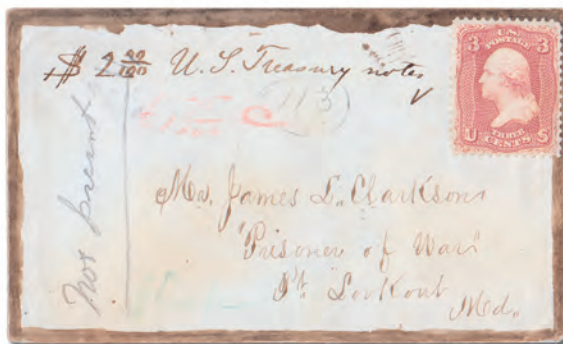 $ 2 00/100 U. S. Treasury notes
U.S.
POSTAGE
3 3
U THREE S
CENTS
113
Mr. James L. Clarkson
"Prisoner of War"
Pt. Lookout
Md.
Not present